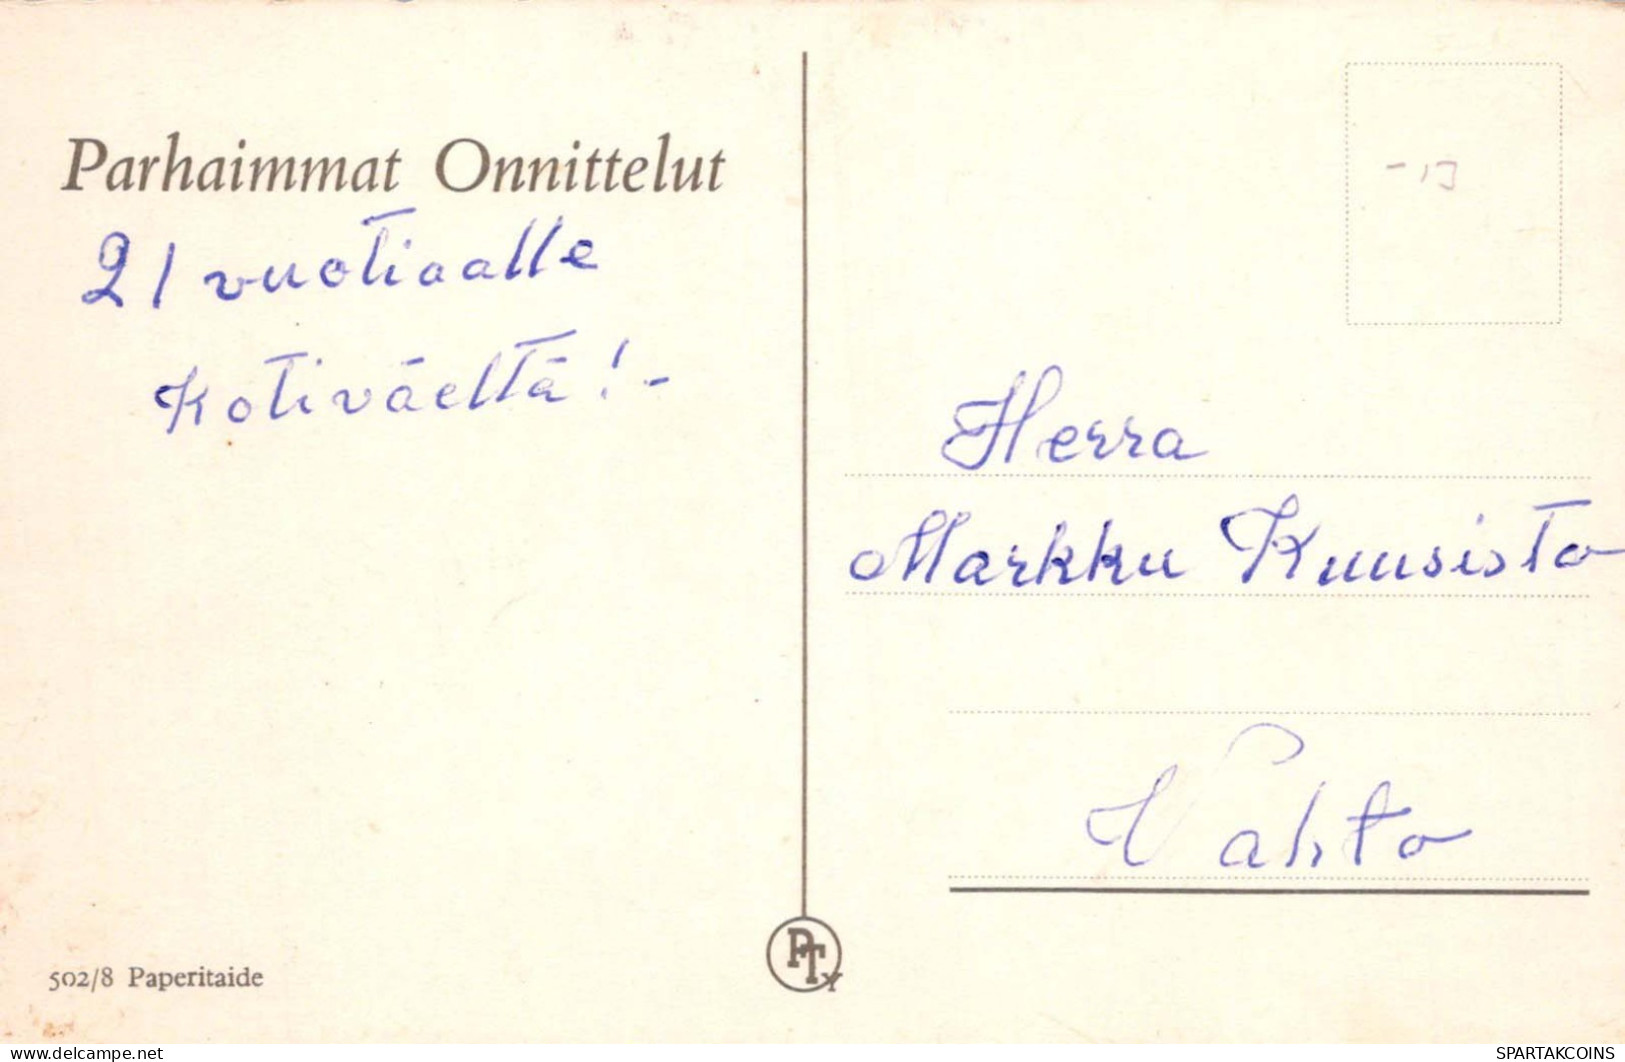 Parhaimmat Onnittelut
21 vuotiaalle
Kotiväeltä! -
Herra
Markku Kuusisto
Vahto
502/8 Paperitaide
PTY
www.delcampe.net
SPARTAKCOINS